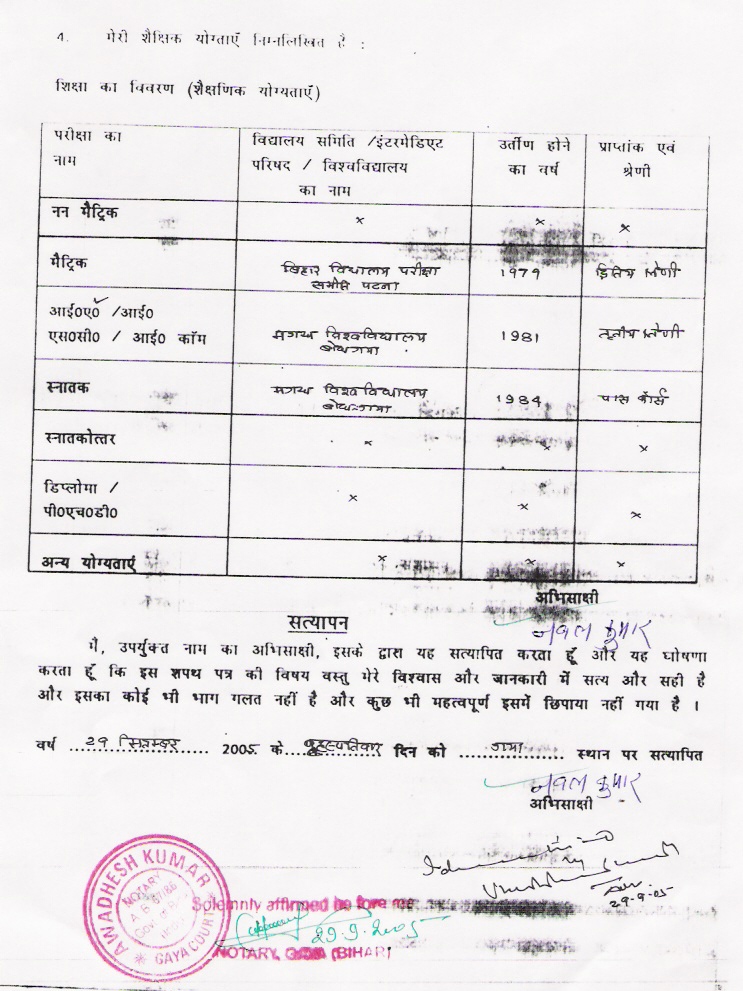 4. मेरी शैक्षिक योग्यताएँ निम्नलिखित है :
शिक्षा का विवरण (शैक्षणिक योग्यताएँ)
परीक्षा का नाम
विद्यालय समिति /इंटरमेडिएट
परिषद / विश्वविद्यालय
का नाम
उर्तीण होने
का वर्ष
प्राप्तांक एवं
श्रेणी
नन मैट्रिक × × ×
मैट्रिक
बिहार विद्यालय परीक्षा
समिति पटना
1979
द्वितिय श्रेणी
आई०ए० /आई०
एस०सी० / आई० कॉम
मगध विश्वविद्यालय
बोधगया
1981
तृतीय श्रेणी
स्नातक
मगध विश्वविद्यालय
बोधगया
1984
पास कोर्स
स्नातकोत्तर × × ×
डिप्लोमा /
पी०एच०डी० × × ×
अन्य योग्यताएं × × ×
अभिसाक्षी
नवल कुमार
सत्यापन
मैं, उपर्युक्त नाम का अभिसाक्षी, इसके द्वारा यह सत्यापित करता हूँ और यह घोषणा
करता हूँ कि इस शपथ पत्र की विषय वस्तु मेरे विश्वास और जानकारी में सत्य और सही है
और इसका कोई भी भाग गलत नहीं है और कुछ भी महत्वपूर्ण इसमें छिपाया नहीं गया है ।
वर्ष 29 सितम्बर 2005 के बृहस्पतिवार दिन को गया स्थान पर सत्यापित
नवल कुमार
अभिसाक्षी
29-9-05
AWADHESH KUMAR
NOTARY
GAYA COURT
Solemnly affirmed be fore me
29.9.2005
NOTARY, GAYA (BIHAR)